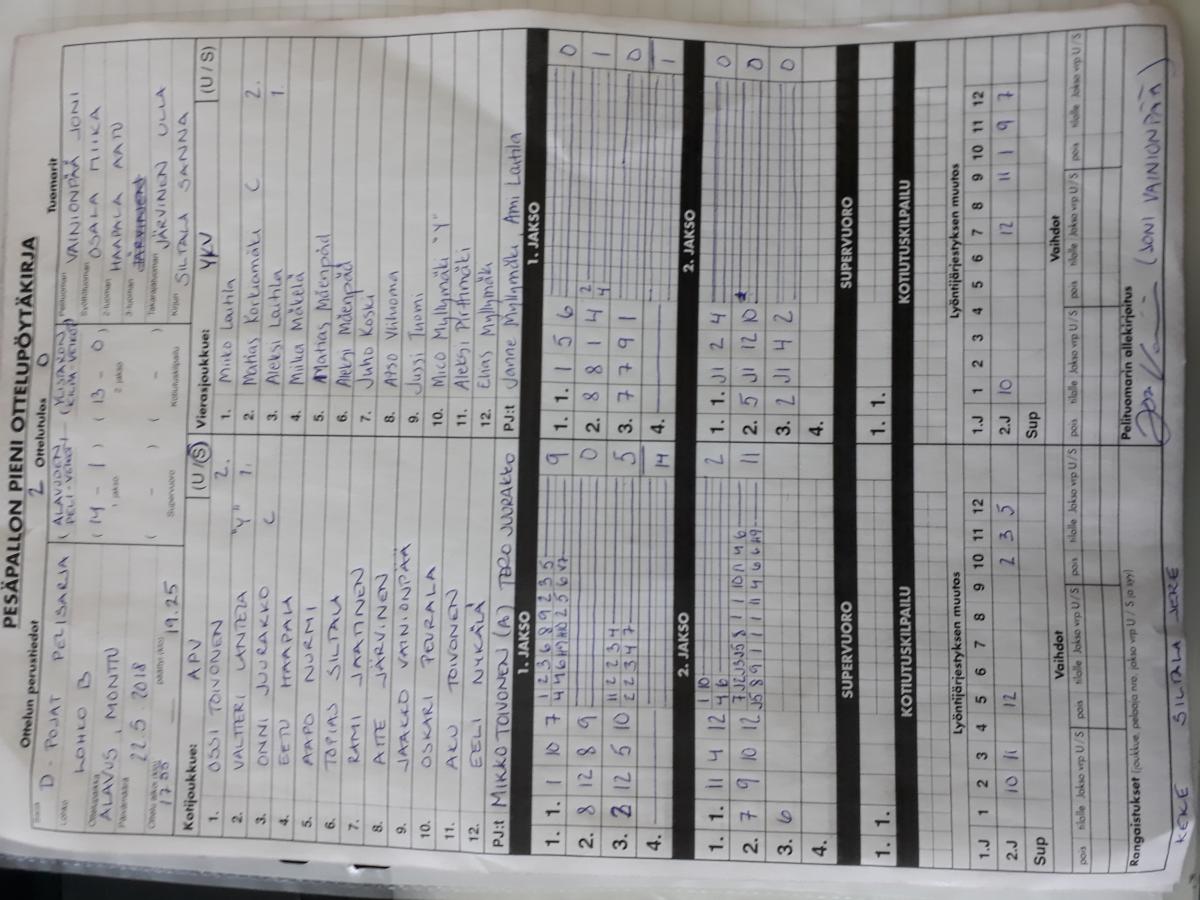 PESÄPALLON PIENI OTTELUPÖYTÄKIRJA
Ottelun perustiedot
Ottelutulos
2 0
Tuomarit
Sarja
D-POJAT PELISARJA
Lohko
LOHKO B
Ottelupaikka
ALAVUS, MONTTU
Päivämäärä
22.5.2018
Ottelu alkoi (klo)
päättyi (klo)
19.25
( ALAVUDEN PELI-VEIKOT – YLISTARON KILPA-VELJET )
( 14 – 1 ) ( 13 – 0 )
1 jakso 2 jakso
( – ) ( – )
Supervuoro Kotiutuskilpailu
Pelituomari
VAINIONPÄÄ JONI
Syöttötuomari
OSALA MIIKA
2-tuomari
HAAPALA AATU
3-tuomari
JÄRVINEN
Takarajatuomari
JÄRVINEN ULLA
Kirjuri
SILTALA SANNA
Kotijoukkue: APV (U / S)
1. OSSI TOIVONEN 2.
2. VALTTERI LANTELA "Y" 1.
3. ONNI JUURAKKO C
4. EETU HAAPALA
5. AAPO NURMI
6. TOPIAS SILTALA
7. RAMI JAATINEN
8. ATTE JÄRVINEN
9. JAAKKO VAINIONPÄÄ
10. OSKARI PEURALA
11. AKU TOIVONEN
12. EELI NYKÄLÄ
PJ:t MIKKO TOIVONEN (A) TERO JUURAKKO
Vierasjoukkue: YKV (U / S)
1. Miiko Laitila
2. Matias Korkiamäki C 2.
3. Aleksi Laitila 1.
4. Miika Mäkelä
5. Matias Mäenpää
6. Aleksi Mäenpää
7. Juho Koski
8. Atso Viiluoma
9. Jussi Tuomi
10. Mico Myllymäki "Y"
11. Aleksi Pirttimäki
12. Elias Myllymäki
PJ:t Janne Myllymäki Ami Laitila
1. JAKSO
1. 1. 1 10 7 9
2. 8 12 8 9 0
3. 2 12 5 10 5
4. 14
1. JAKSO
1. 1. 1 5 6 0
2. 8 8 1 4 2 4 1
3. 7 7 9 1 0
4. 1
2. JAKSO
1. 1. 11 4 12 2
2. 7 9 10 12 11
3. 6
4.
2. JAKSO
1. 1. J1 2 4 0
2. 5 J1 12 10 0
3. 2 J1 4 2 0
4.
SUPERVUORO
1. 1.
SUPERVUORO
1. 1.
KOTIUTUSKILPAILU
KOTIUTUSKILPAILU
Lyöntijärjestyksen muutos
1.J 1 2 3 4 5 6 7 8 9 10 11 12
2.J 10 11 12 2 3 5
Sup
Lyöntijärjestyksen muutos
1.J 1 2 3 4 5 6 7 8 9 10 11 12
2.J 10 12 11 1 9 7
Sup
Vaihdot
pois tilalle Jakso vrp U / S pois tilalle Jakso vrp U / S
Vaihdot
pois tilalle Jakso vrp U / S pois tilalle Jakso vrp U / S
Rangaistukset (joukkue, pelaaja nro, jakso vrp U / S ja syy)
KEKE SILTALA JERE
Pelituomarin allekirjoitus
(JONI VAINIONPÄÄ)